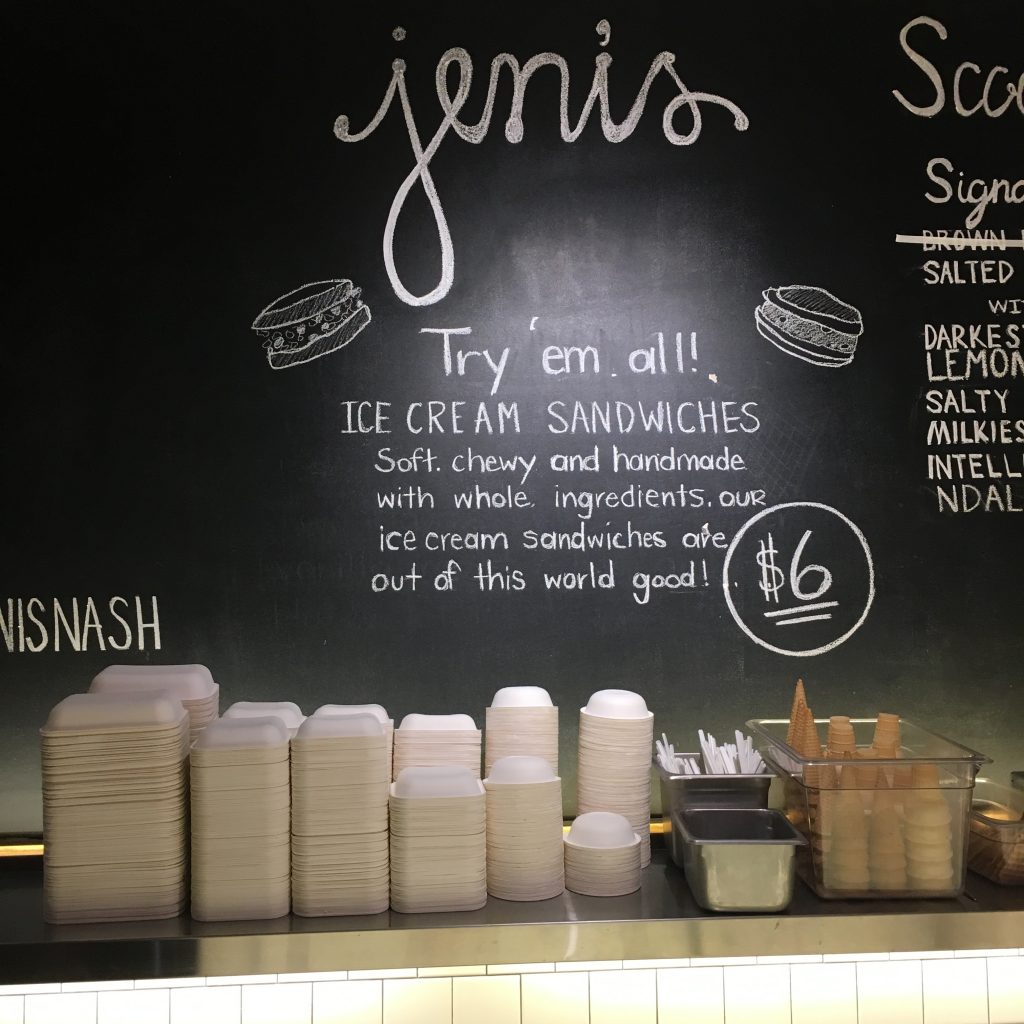 jeni's
Try 'em all!
ICE CREAM SANDWICHES
Soft. chewy and handmade
with whole ingredients. OUR
ice cream sandwiches are
out of this world good!
$6
NISNASH
Sco
Signa
BROWN
SALTED
WI
DARKES
LEMON
SALTY
MILKIES
INTELLI
NDAL